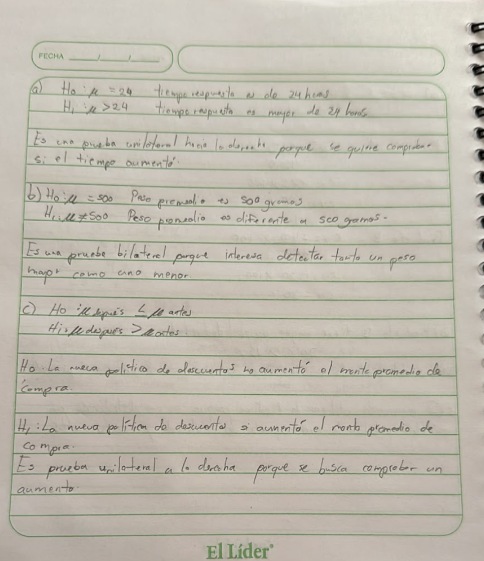 FECHA ___/___/___
a) Ho: μ = 24 tiempo respuesta es de 24 horas
H1: μ > 24 tiempo respuesta es mayor de 24 horas
Es una prueba unilateral hacia la derecha, porque se quiere comprobar
si el tiempo aumentó.
b) Ho: μ = 500 Peso promedio es 500 gramos
H1: μ ≠ 500 Peso promedio es diferente a 500 gramos.
Es una prueba bilateral porque interesa detectar tanto un peso
mayor como uno menor.
c) Ho: μ después ≤ μ antes
H1: μ después > μ antes
Ho: La nueva política de descuentos no aumentó el monto promedio de
compra.
H1: La nueva política de descuentos si aumentó el monto promedio de
compra.
Es prueba unilateral a la derecha porque se busca comprobar un
aumento.
El Líder